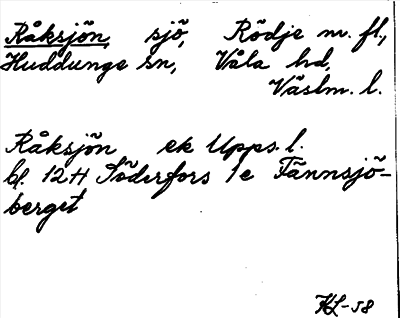 Råksjön, sjö, Rödje m. fl.,
Huddunge sn, Våla hd,
Västm. l.
Råksjön ek Upps. l.
bl. 12H Söderfors 1e Tännsjö-
berget
HL-58